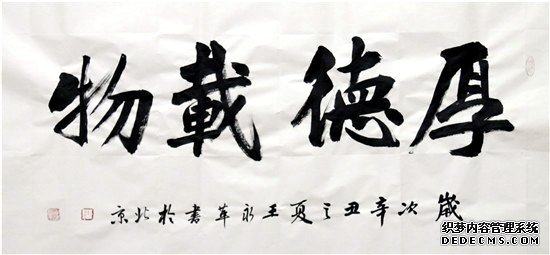 厚德載物
歲次辛丑之夏王永革書於北京
织梦内容管理系统
DEDECMS.COM